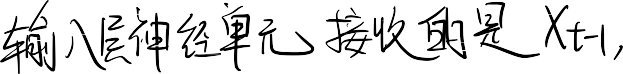 输入层神经单元接收的是 Xt-1,